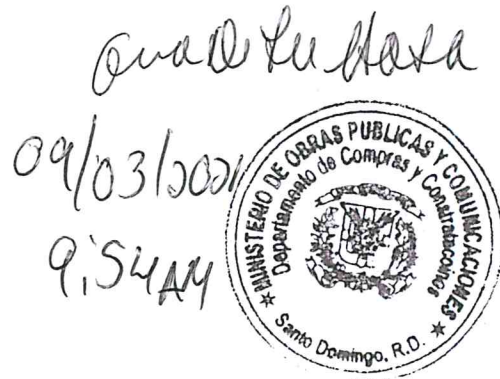 De La Rosa
09/03/2021
9:54 AM
MINISTERIO DE OBRAS PUBLICAS Y COMUNICACIONES
Departamento de Compras y Contrataciones
Santo Domingo, R.D.